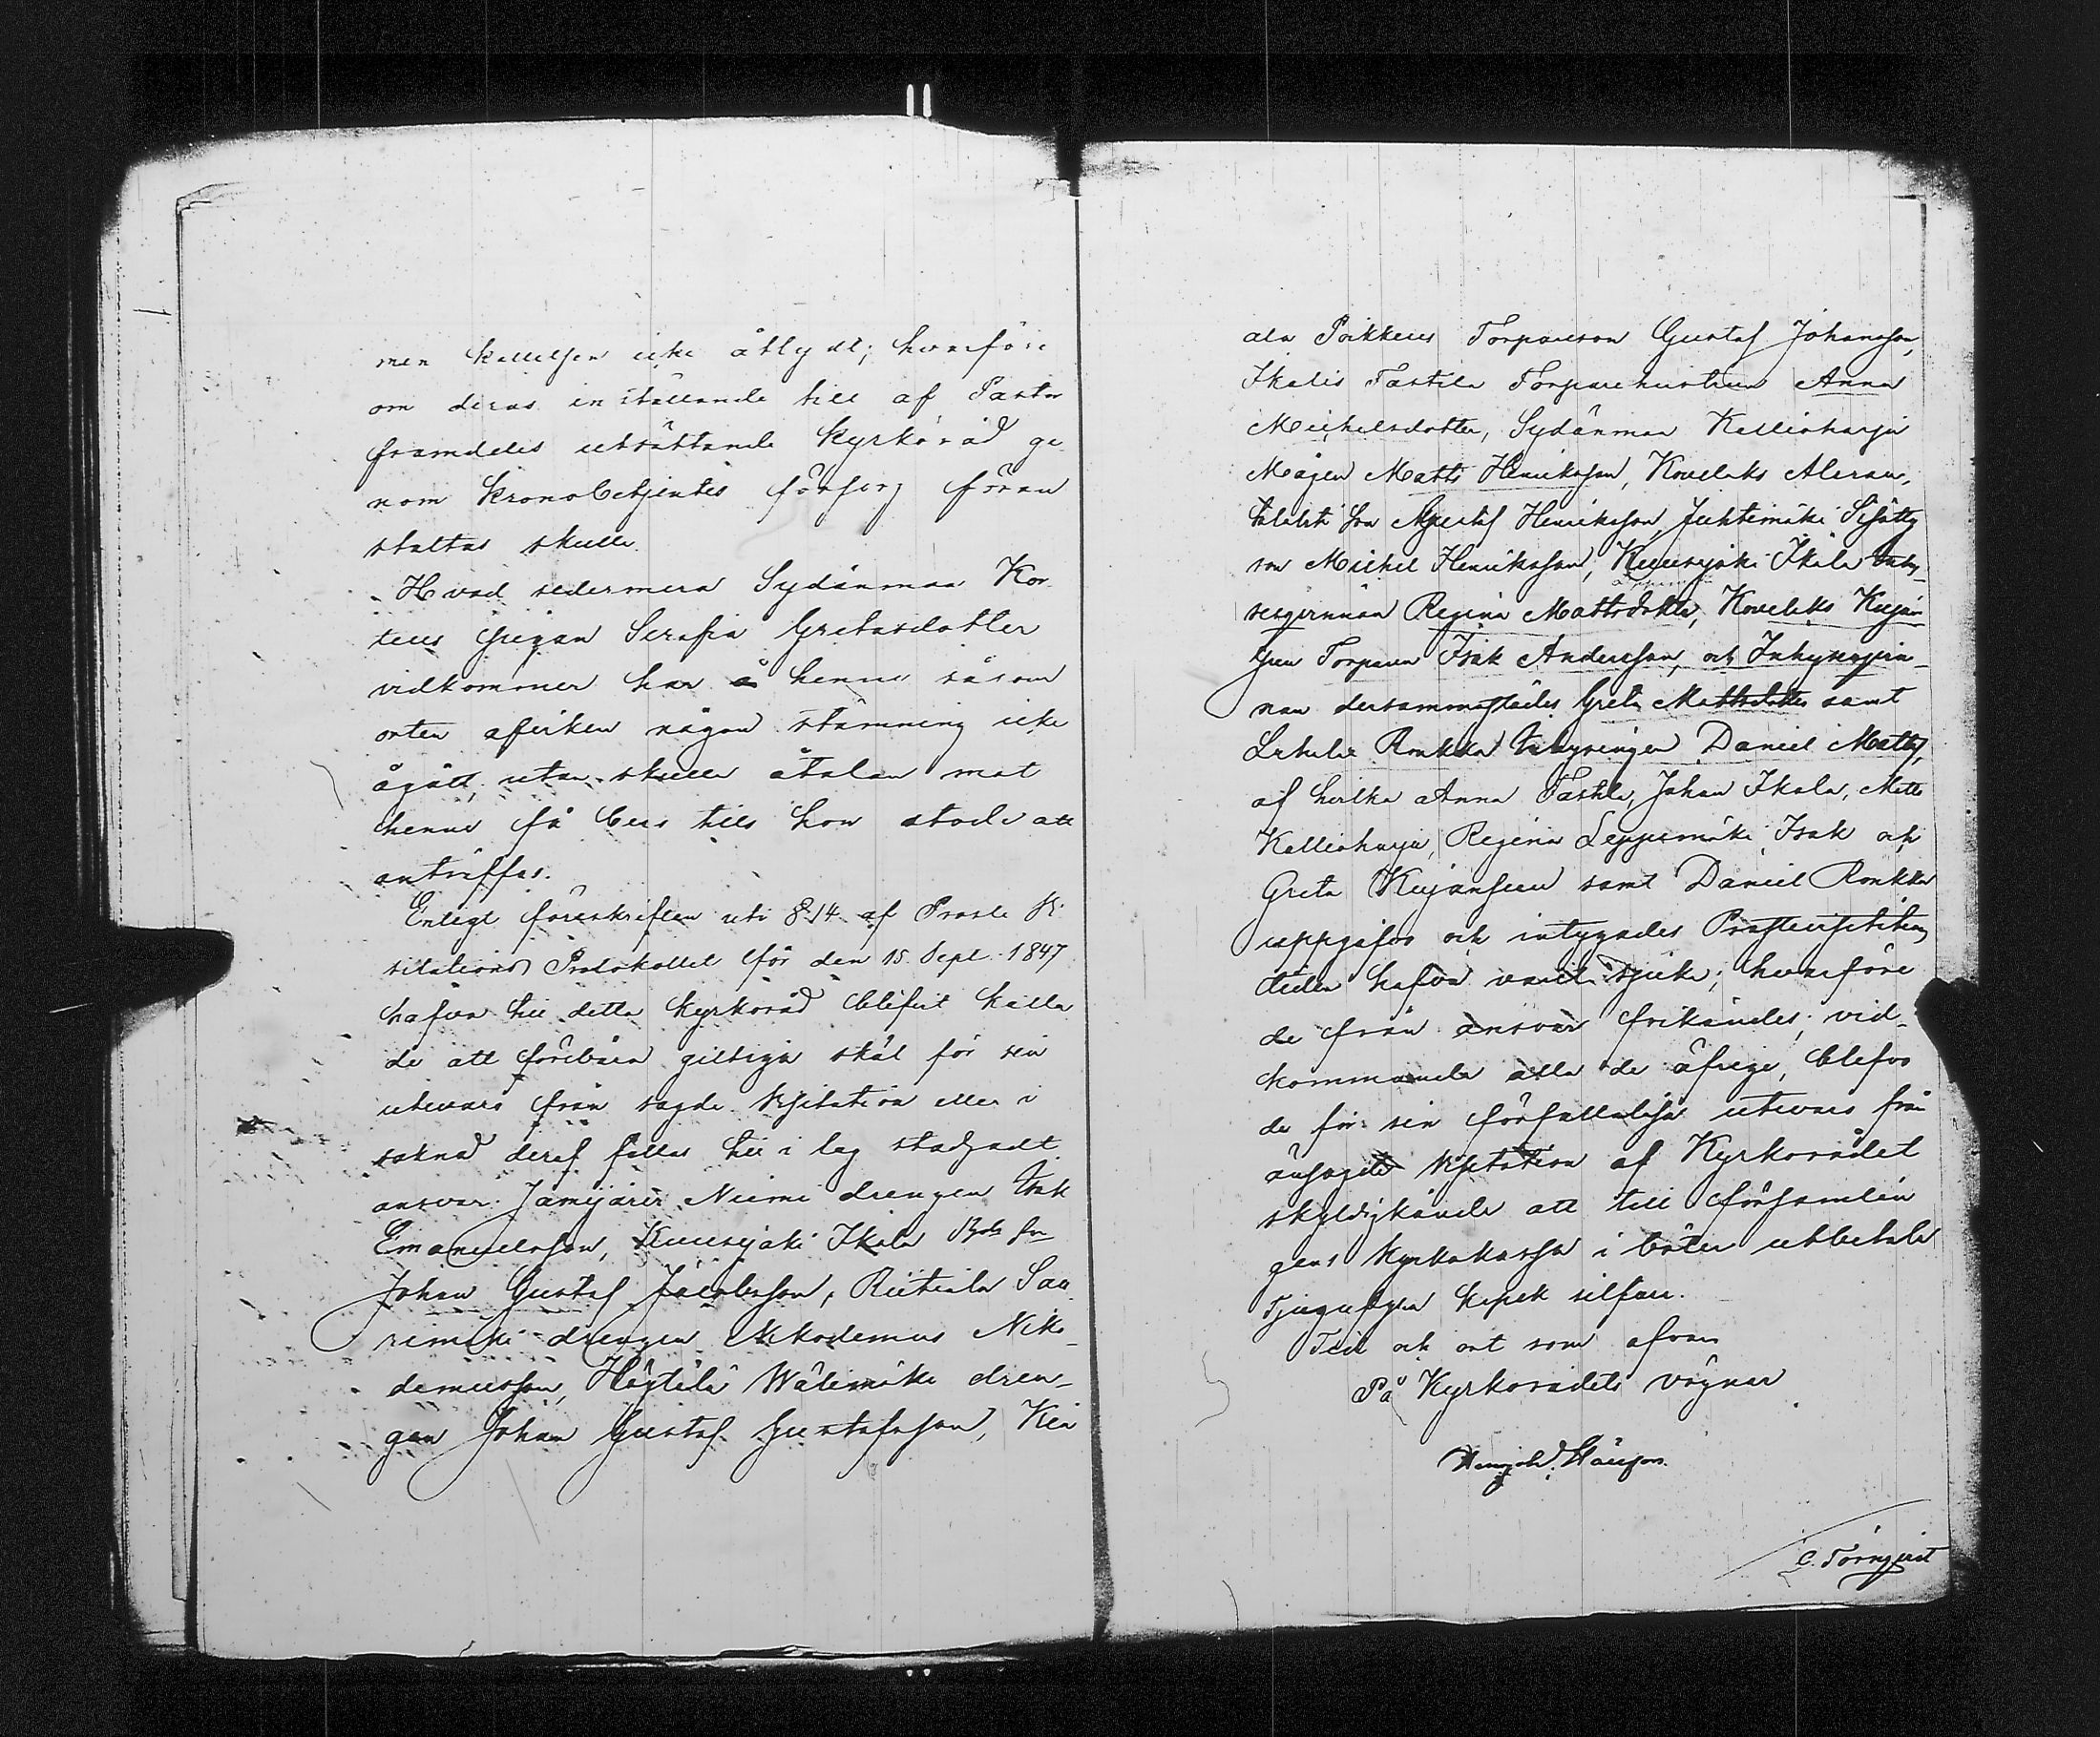 men kallelsen icke åtlydt; hvarföre
om deras inställande till af Pastor
framdeles utsättande Kyrkoråd ge
nom Kronobetjentes försorg föran
staltas skulle.
Hvad sedermera Sydänmaa Kor
teus pigan Serafia Gretasdotter
vidkommer har å henne såsom
orten afviken någon stämning icke
ågått, utan skulle åtalan mot
henne få bero tills hon stode att
anträffas.
Enligt föreskriften uti § 14 af Proste Vi
sitations Protokollet för den 15 Sept. 1847
hafva till detta Kyrkoråd blifvit kalla
de att förebära giltiga skäl för sin
utevaro från sagde Visitation eller i
saknad deraf fällas till i lag stadgadt
ansvar: Jämijärvi Niemi drengen Isak
Emanuelsson, Kuusijoki Ikala
Johan Gustaf Jacobsson, Riitiala Saa
rimäki drengen Nikodemus Niko
demusson, Högtilä Wälimäki dren
gen Johan Gustaf Gustafsson, Kia
ala Poikkeus Torparson Gustaf Johansson,
Ikalis Tastila Torparehustrun Anna
Michelsdotter, Sydänmaa Kallioharju
Mågen Matts Henriksson, Kovelaks
son Gustaf Henriksson, Juhtimäki
son Michel Henriksson, Kuusijoki Ikala Inhy
sesqvinnan Regina Mattsdotter, Kovelaks Kujan
Torparen Isak Andersson, och Inhysesqvin
nan dersammastädes Greta Mattsdotter samt
Ronkka Inhysingen Daniel Matts,
af hvilka Anna Tastila, Johan Ikala, Matts
Kallioharju, Regina Leppämäki, Isak och
Greta samt Daniel Ronkka
uppgåfvos och intygades Prostevisitations
tiden hafva varit sjuka; hvarföre
de från ansvar frikändes; vid
kommande alla de öfrige, blefvo
de för sin förfallolösa utevaro från
ansagde Visitation af Kyrkorådet
skyldigkände att till församlin
gens Kyrkokassa i böter utbetala
Tjugufyra kopek silfver.
Tid och ort som ofvan
På Kyrkorådets vägnar
C. Törnqvist